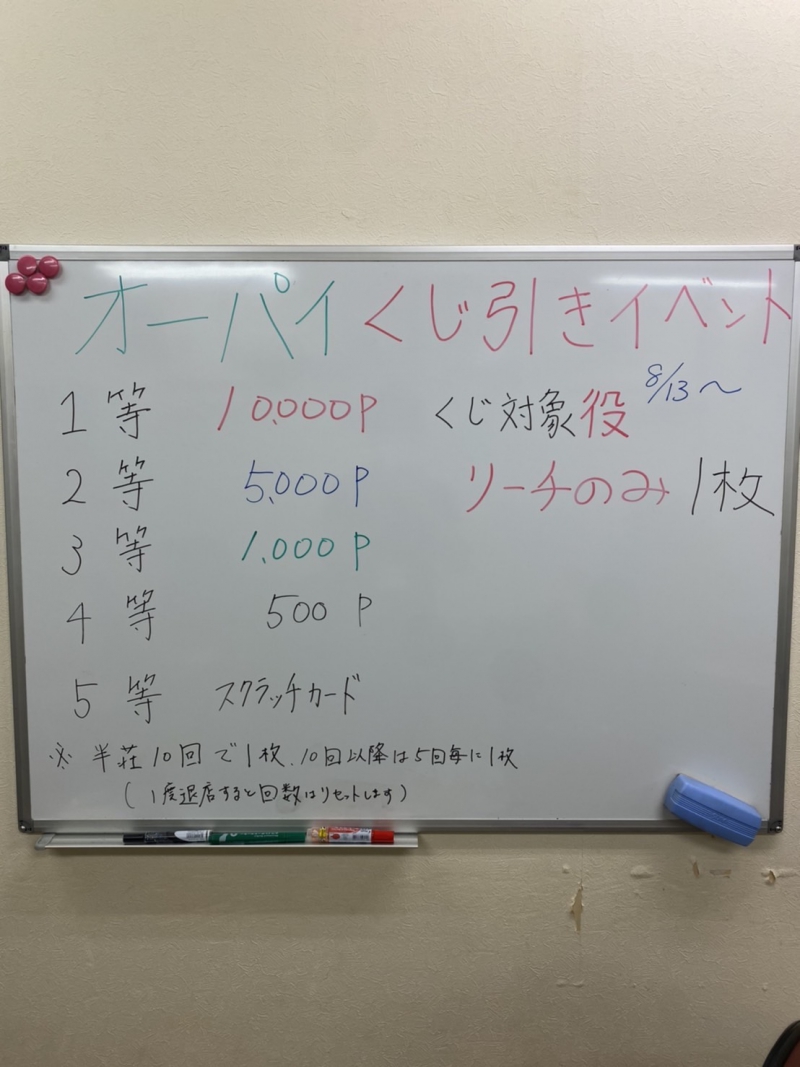 オーパイくじ引きイベント
1等 10.000P
2等 5.000P
3等 1.000P
4等 500P
5等 スクラッチカード
くじ対象役 8/13〜
リーチのみ 1枚
※ 半荘10回で1枚.10回以降は5回毎に1枚
(1度退店すると回数はリセットします)